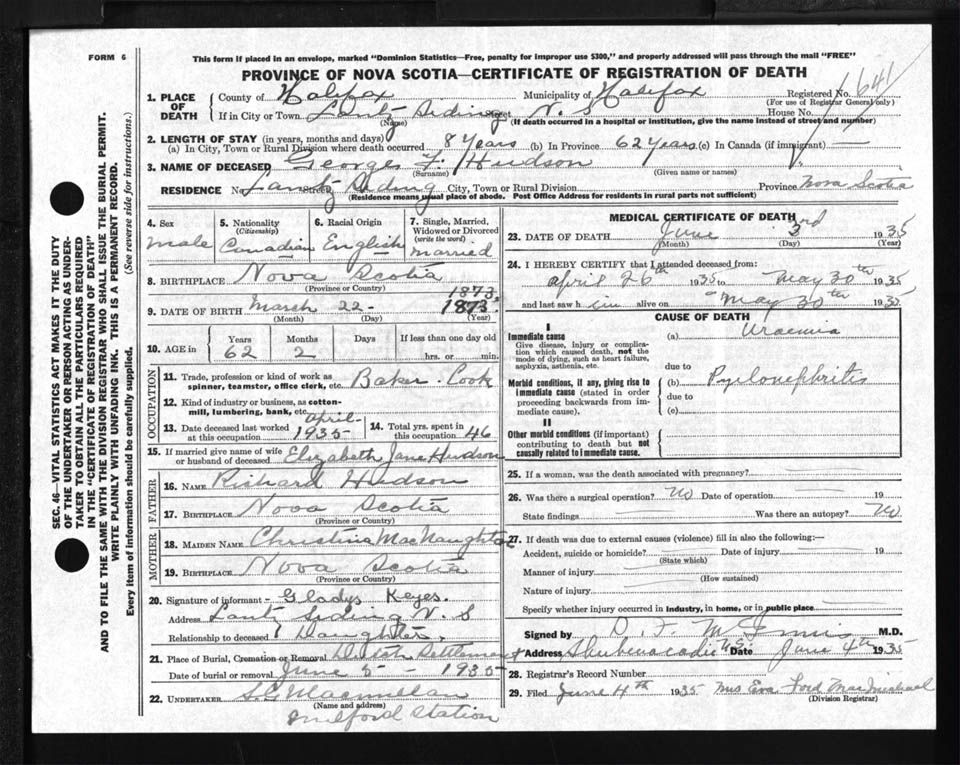 FORM 6
This form if placed in an envelope, marked "Dominion Statistics—Free, penalty for improper use $300," and properly addressed will pass through the mail "FREE"
PROVINCE OF NOVA SCOTIA—CERTIFICATE OF REGISTRATION OF DEATH
1. PLACE OF DEATH
County of Halifax Municipality of Halifax Registered No.
(For use of Registrar General only)
If in City or Town Lantz Siding Street N. S House No.
(Name) (If death occurred in a hospital or institution, give the name instead of street and number)
2. LENGTH OF STAY (in years, months and days)
(a) In City, Town or Rural Division where death occurred 8 Years (b) In Province 62 Years (c) In Canada (if immigrant) —
3. NAME OF DECEASED George F. Hudson
(Surname) (Given name or names)
RESIDENCE No. Lantz Street Siding City, Town or Rural Division Province Nova Scotia
(Residence means usual place of abode. Post Office Address for residents in rural parts not sufficient)
4. Sex
male
5. Nationality
(Citizenship)
Canadian
6. Racial Origin
English
7. Single, Married, Widowed or Divorced
(write the word)
married
8. BIRTHPLACE Nova Scotia
(Province or Country)
1873
9. DATE OF BIRTH March 22 1873
(Month) (Day) (Year)
10. AGE in
Years Months Days If less than one day old
62 2 hrs. or min.
OCCUPATION
11. Trade, profession or kind of work as spinner, teamster, office clerk, etc. Baker - Cook
12. Kind of industry or business, as cotton-mill, lumbering, bank, etc.
13. Date deceased last worked at this occupation April 1935
14. Total yrs. spent in this occupation 46
15. If married give name of wife or husband of deceased Elizabeth Jane Hudson
FATHER
16. NAME Richard Hudson
17. BIRTHPLACE Nova Scotia
(Province or Country)
MOTHER
18. MAIDEN NAME Christina MacNaughton
19. BIRTHPLACE Nova Scotia
(Province or Country)
20. Signature of informant - Gladys Keyes.
Address Lantz Siding N. S
Relationship to deceased Daughter.
21. Place of Burial, Cremation or Removal Dutch Settlement
Date of burial or removal June 5 1935
22. UNDERTAKER Macmillan
(Name and address)
Milford Station
MEDICAL CERTIFICATE OF DEATH
23. DATE OF DEATH June 3rd 1935
(Month) (Day) (Year)
24. I HEREBY CERTIFY that I attended deceased from:
April 26th 1935 to May 30th 1935
and last saw h im alive on May 30th 1935
CAUSE OF DEATH
I
Immediate cause
Give disease, injury or complication which caused death, not the mode of dying, such as heart failure, asphyxia, asthenia, etc.
(a) Uraemia
due to
Morbid conditions, if any, giving rise to immediate cause (stated in order proceeding backwards from immediate cause).
(b) Pyelonephritis
due to
(c)
II
Other morbid conditions (if important) contributing to death but not causally related to immediate cause.
25. If a woman, was the death associated with pregnancy?
26. Was there a surgical operation? No Date of operation 19
State findings Was there an autopsy? No
27. If death was due to external causes (violence) fill in also the following:—
Accident, suicide or homicide? Date of injury 19
(State which)
Manner of injury
(How sustained)
Nature of injury
Specify whether injury occurred in industry, in home, or in public place
Signed by D. F. McInnis M.D.
Address Shubenacadie N.S. Date June 4th 1935
28. Registrar's Record Number
29. Filed June 4th 1935 Mrs Eva Ford MacMichael
(Division Registrar)
SEC. 46—VITAL STATISTICS ACT MAKES IT THE DUTY
OF THE UNDERTAKER OR PERSON ACTING AS UNDER-
TAKER TO OBTAIN ALL THE PARTICULARS REQUIRED
IN THE "CERTIFICATE OF REGISTRATION OF DEATH"
AND TO FILE THE SAME WITH THE DIVISION REGISTRAR WHO SHALL ISSUE THE BURIAL PERMIT.
WRITE PLAINLY WITH UNFADING INK. THIS IS A PERMANENT RECORD.
Every item of information should be carefully supplied. (See reverse side for instructions.)